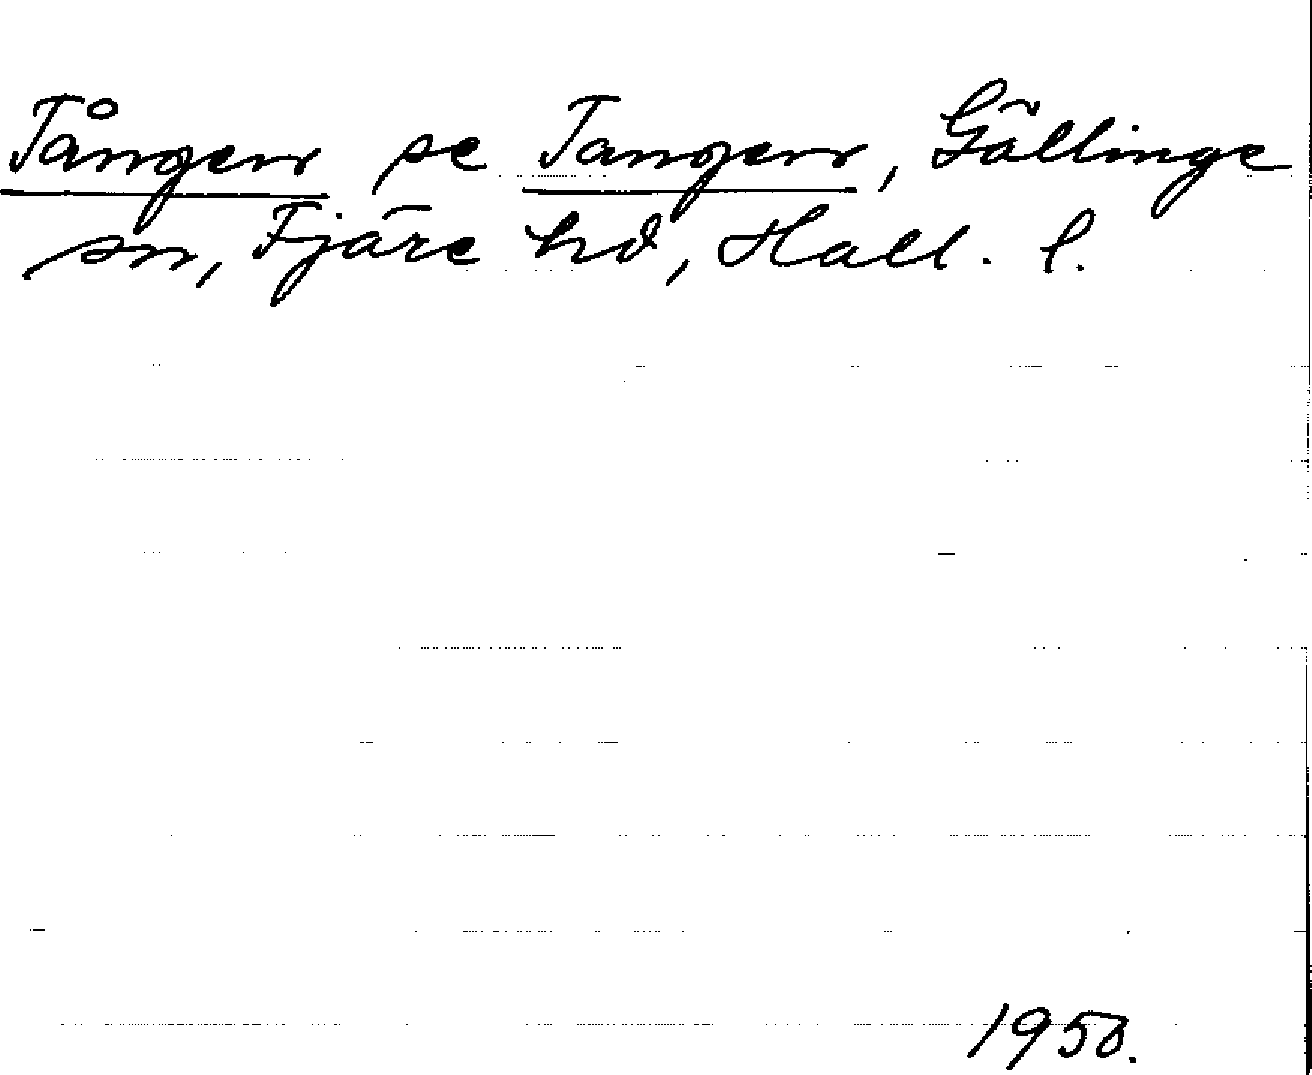 Tången se Tangen, Gällinge
sn, Fjäre hd, Hall. l.
1950.